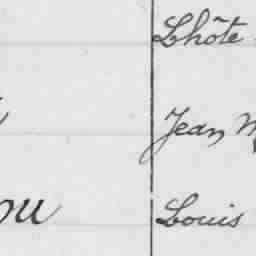 Lhôte
Jean M
ou Louis